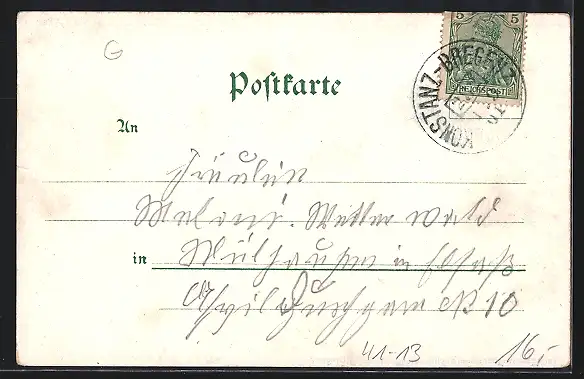 G
5 5
REICHSPOST
KONSTANZ-BREGENZ
Postkarte
An
Fräulein
Melanie Wetterwald
in Mülhausen in Elsaß
No 10
41-13
16,-